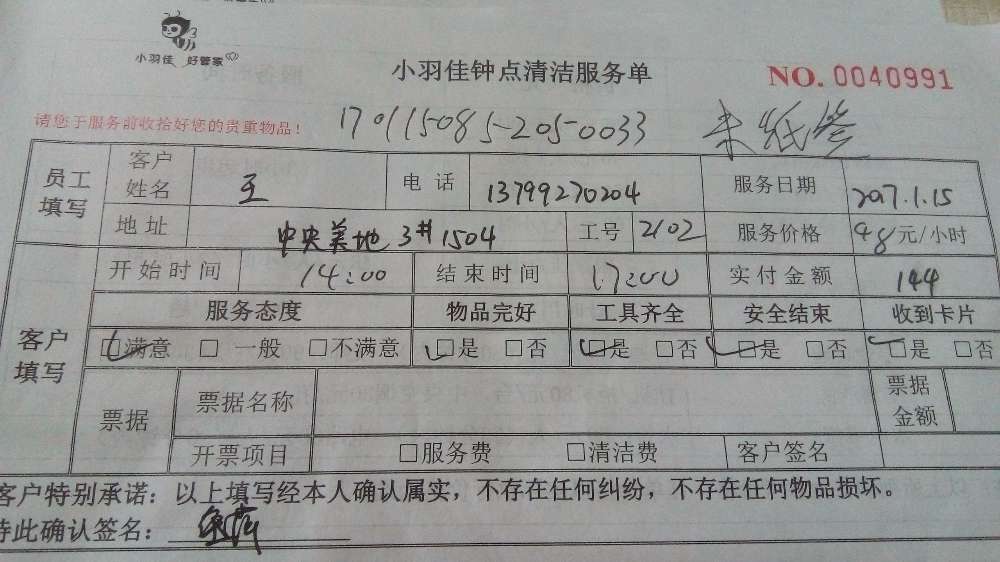 小羽佳 好管家
小羽佳钟点清洁服务单 NO. 0040991
请您于服务前收拾好您的贵重物品! 170115085-2050033 未纸签
员工填写 客户姓名 王 电话 13799270204 服务日期 2017.1.15
地址 中央美地3#1504 工号 2102 服务价格 48元/小时
客户填写 开始时间 14:00 结束时间 17:00 实付金额 144
服务态度 物品完好 工具齐全 安全结束 收到卡片
☑满意 □一般 □不满意 ☑是 □否 ☑是 □否 ☑是 □否 ☑是 □否
票据 票据名称 票据金额
开票项目 □服务费 □清洁费 客户签名
客户特别承诺:以上填写经本人确认属实,不存在任何纠纷,不存在任何物品损坏。
特此确认签名: